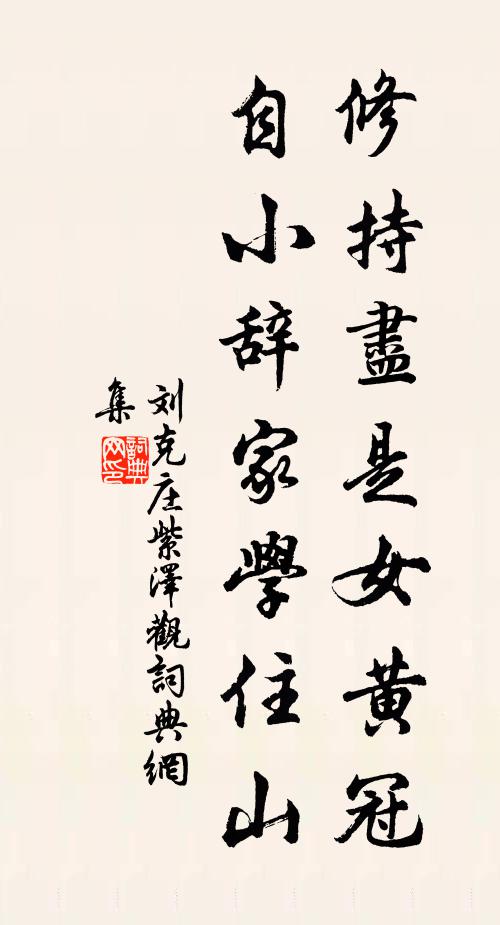 修持盡是女黄冠
自小辞家學住山
刘克庄紫澤觀詞典網
集
詞典
网印